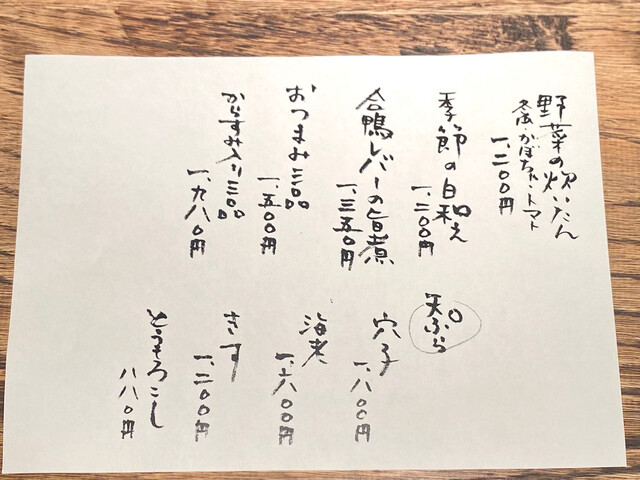 野菜の炊いたん
冬瓜・かぼちゃ・トマト
一、二〇〇円
季節の白和え
一、二〇〇円
合鴨レバーの旨煮
一、三五〇円
おつまみ三品
一、五〇〇円
からすみ入り三品
一、九八〇円
天ぷら
穴子
一、八〇〇円
海老
一、六〇〇円
きす
一、二〇〇円
とうもろこし
八八〇円